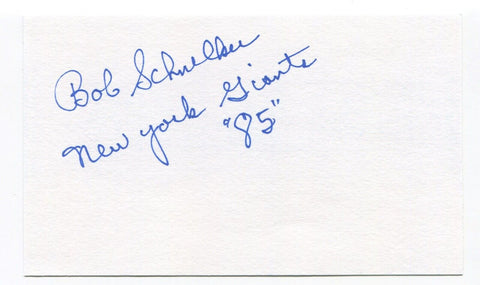 Bob Schnelker
New York Giants
"85"